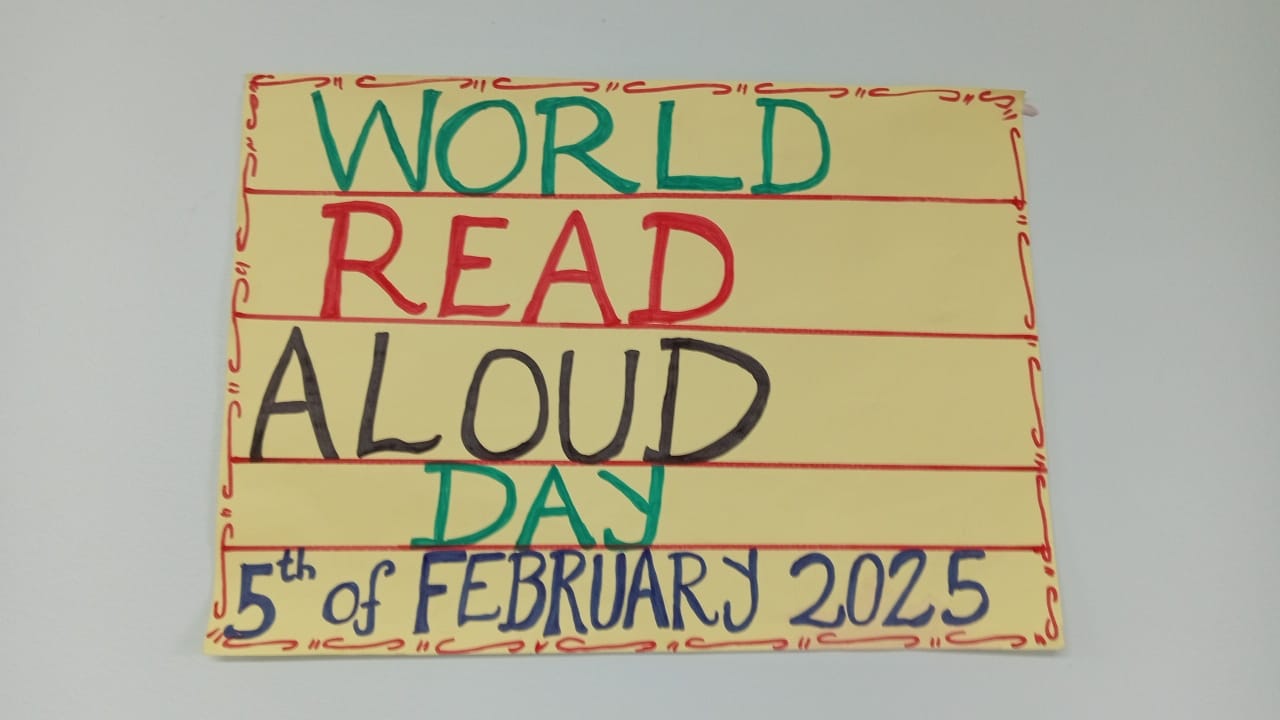 WORLD
READ
ALOUD
DAY
5th of FEBRUARY 2025